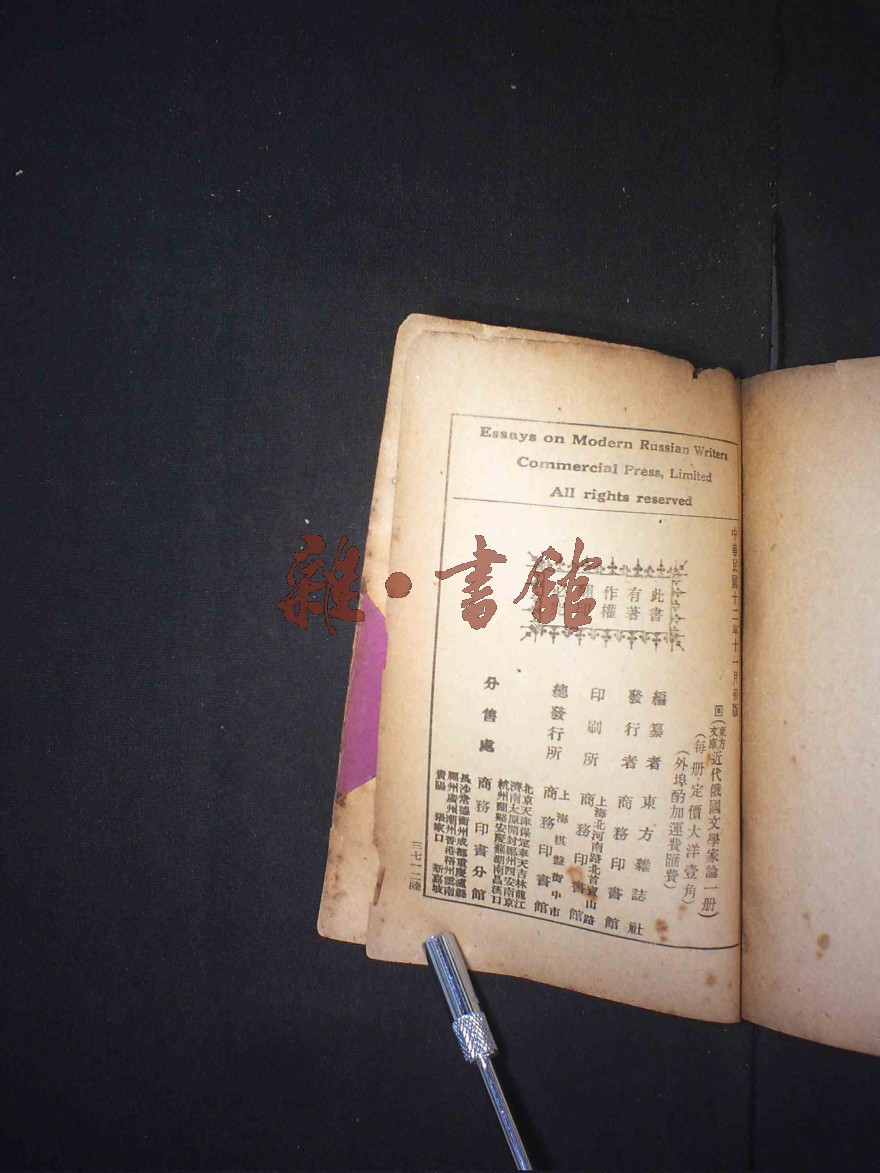 Essays on Modern Russian Writers
Commercial Press, Limited
All rights reserved
中華民國十二年十一月初版
(東方文庫)近代俄國文學家論一册)
(每册定價大洋壹角)
(外埠酌加運費匯費)
此書
有著
作權
編纂者 東方雜誌社
發行者 商務印書館
印刷所 上海北河南路北首寶山路 商務印書館
總發行所 上海棋盤街中市 商務印書館
分售處 商務印書分館
北京天津保定奉天吉林龍江
濟南太原開封鄭州西安南京
杭州蘭谿安慶蕪湖南昌漢口
長沙常德衡州成都重慶瀘縣
福州廣州潮州香港梧州雲南
貴陽 張家口 新嘉坡
三七一二陸
雜·書館